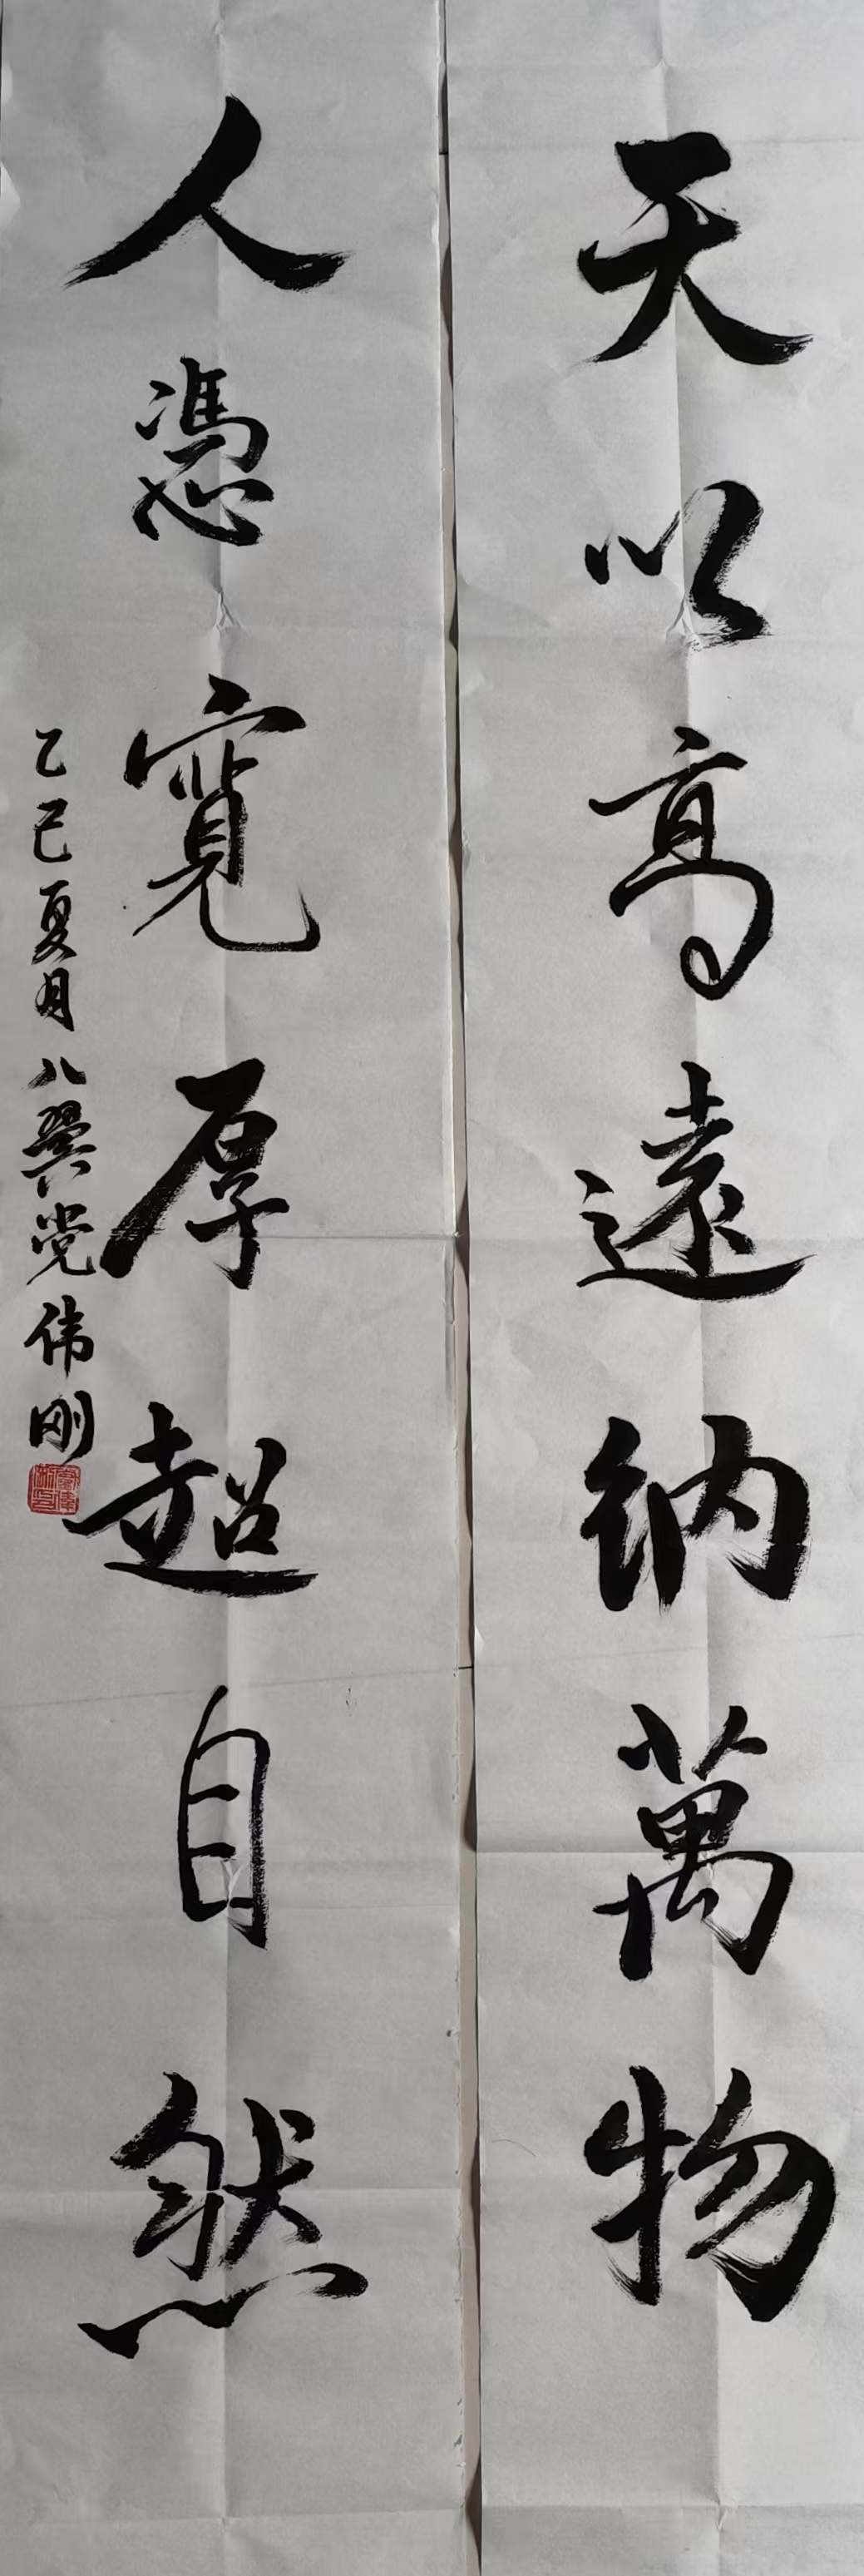 天以高遠納萬物
人憑寬厚超自然
乙巳夏月八翼党伟刚